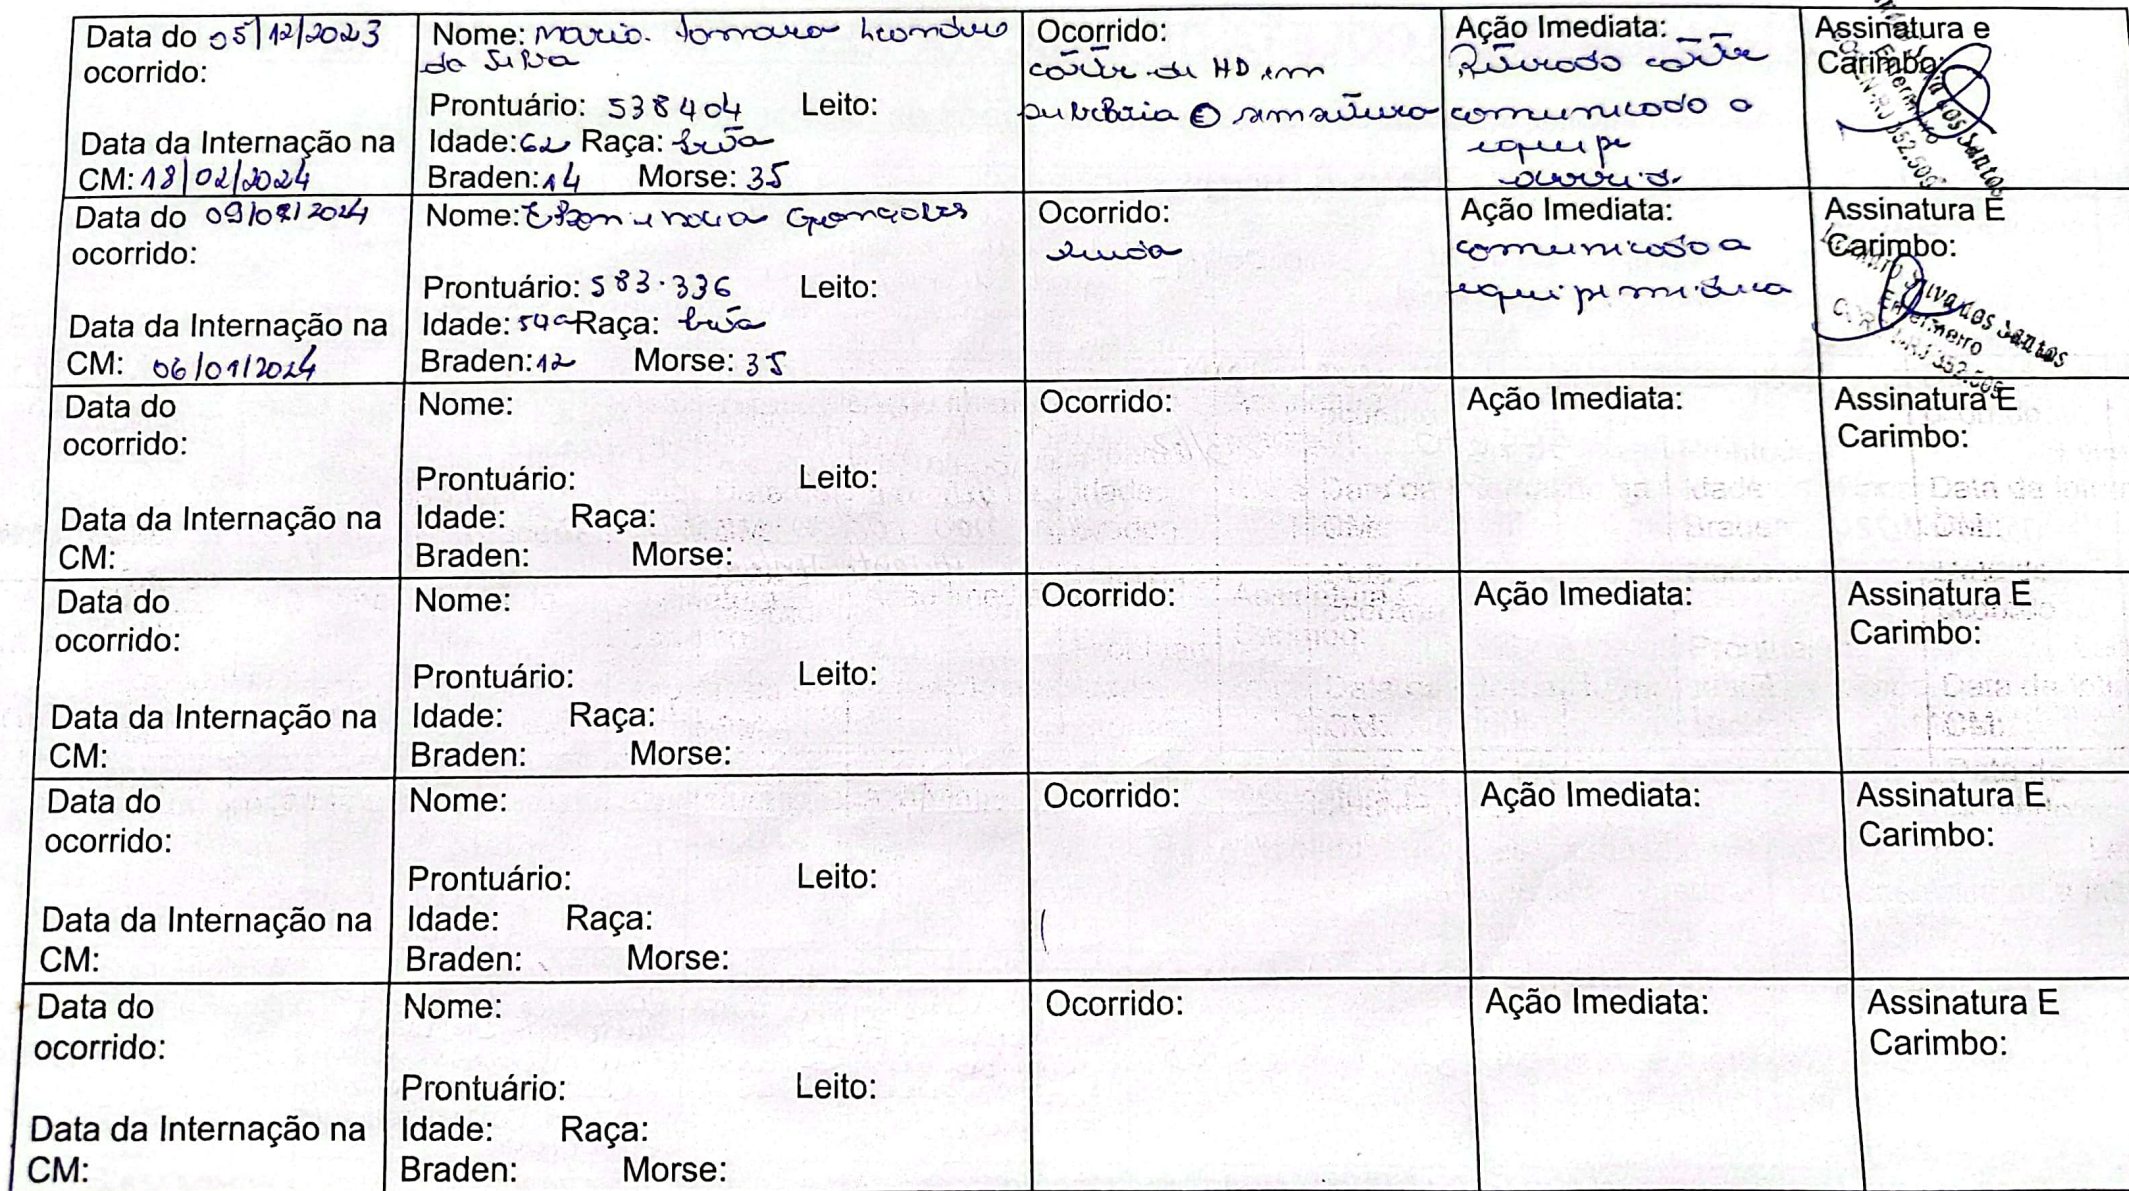 Data do 05/12/2023
ocorrido:
Data da Internação na
CM: 18/02/2024
Nome: Maria
da Silva
Prontuário: 538404 Leito:
Idade: 62 Raça:
Braden: 14 Morse: 35
Ocorrido:
de HD em
subclávia
Ação Imediata:
Retirado
comunicado a
equipe
Assinatura e
Carimbo:
dos Santos
Enfermeiro
COREN-RJ 352.509
Data do 09/ /2024
ocorrido:
Data da Internação na
CM: 06/01/2024
Nome: Gonçalves
Prontuário: 583.336 Leito:
Idade: 54a Raça:
Braden: 12 Morse: 35
Ocorrido:
Ação Imediata:
comunicado a
equipe médica
Assinatura E
Carimbo:
Silva dos Santos
Enfermeiro
COREN-RJ 352.509
Data do
ocorrido:
Data da Internação na
CM:
Nome:
Prontuário: Leito:
Idade: Raça:
Braden: Morse:
Ocorrido:
Ação Imediata:
Assinatura E
Carimbo:
Data do
ocorrido:
Data da Internação na
CM:
Nome:
Prontuário: Leito:
Idade: Raça:
Braden: Morse:
Ocorrido:
Ação Imediata:
Assinatura E
Carimbo:
Data do
ocorrido:
Data da Internação na
CM:
Nome:
Prontuário: Leito:
Idade: Raça:
Braden: Morse:
Ocorrido:
Ação Imediata:
Assinatura E
Carimbo:
Data do
ocorrido:
Data da Internação na
CM:
Nome:
Prontuário: Leito:
Idade: Raça:
Braden: Morse:
Ocorrido:
Ação Imediata:
Assinatura E
Carimbo: